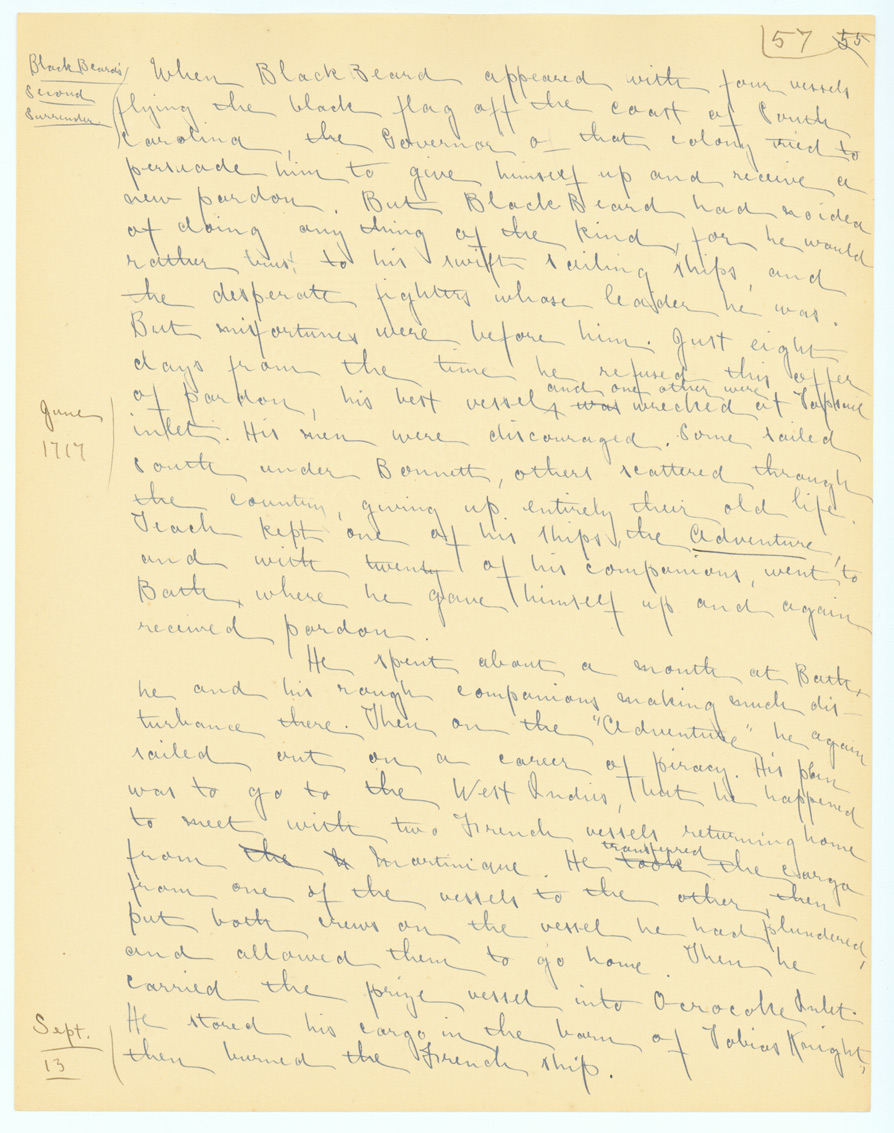 57 55
Black Beard's
Second
Surrender
When BlackBeard appeared with four vessels
flying the black flag off the coast of South
Carolina, the Governor of that colony tried to
persuade him to give himself up and receive a
new pardon. But BlackBeard had no idea
of doing any thing of the kind, for he would
rather trust to his swift sailing ships, and
the desperate fighters whose leader he was.
But misfortunes were before him. Just eight
days from the time he refused this offer
and one other were
of pardon, his best vessel, was wrecked at Topsail
June
1717
inlet. His men were discouraged. Some sailed
South under Bonnett, others scattered through
the country, giving up entirely their old life.
Teach kept one of his ships, the Adventure,
and with twenty of his companions, went to
Bath, where he gave himself up and again
received pardon.
He spent about a month at Bath,
he and his rough companions making much dis-
turbance there. Then on the "Adventure" he again
sailed out on a career of piracy. His plan
was to go to the West Indies, that he happened
to meet with two French vessels returning home
transferred
from the Martinique. He took the cargo
from one of the vessels to the other, then
put both crews on the vessel he had plundered,
and allowed them to go home. Then he
carried the prize vessel into Ocracoke Inlet.
Sept.
13
He stored his cargo in the barn of Tobias Knight,
then burned the French ship.